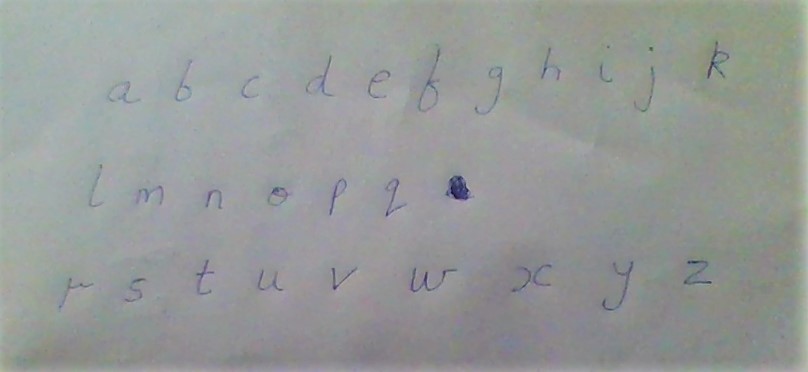 a b c d e f g h i j k
l m n o p q
r s t u v w x y z